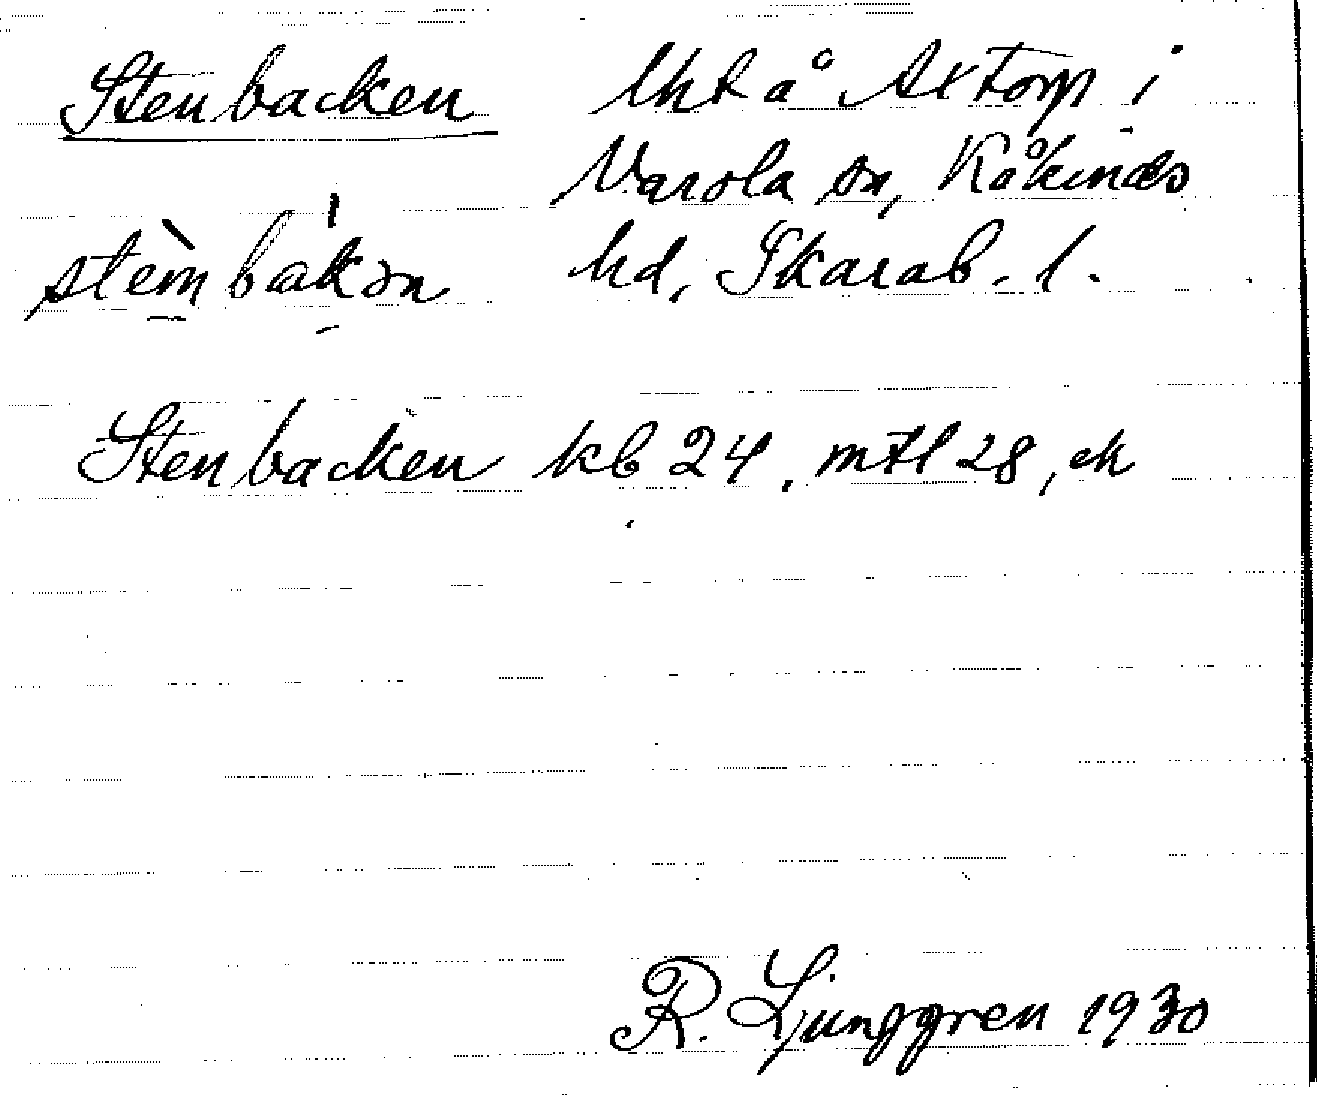 Stenbacken lht å Axtorp i
Varola sn, Kåkinds
stèmbákən hd, Skarab. l.
Stenbacken kb 24, mtl 28, ek
R. Ljunggren 1930